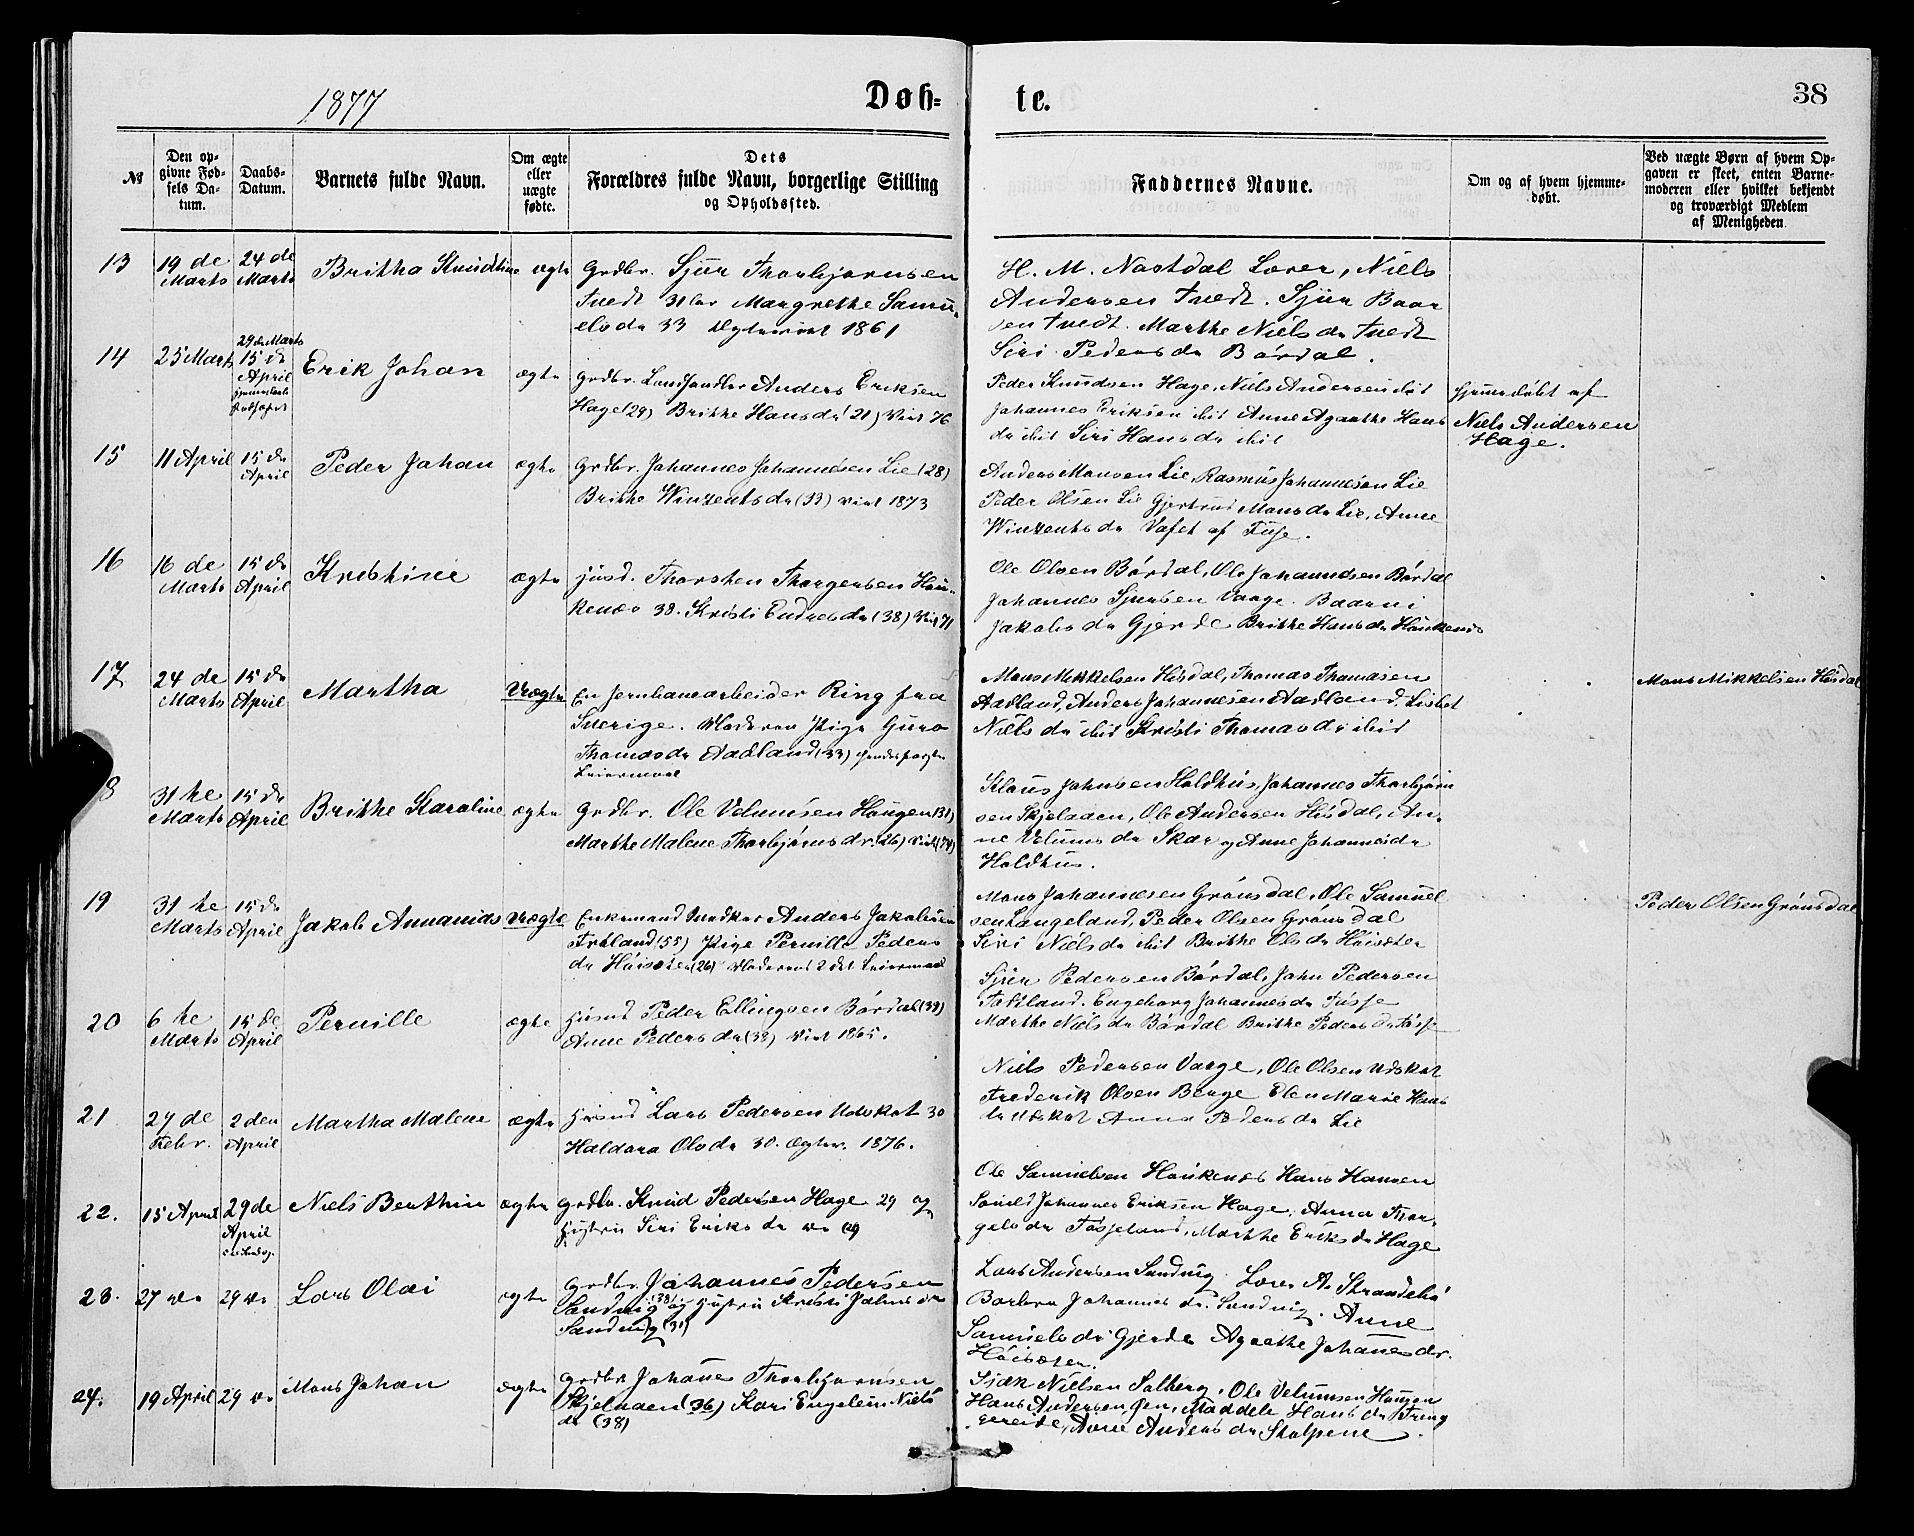 1877
Døb-
te.
38
№
Den op-
givne Fød-
sels Da-
tum.
Daabs-
Datum.
Barnets fulde Navn.
Om ægte
eller
uægte
fødte.
Dets
Forældres fulde Navn, borgerlige Stilling
og Opholdssted.
Faddernes Navne.
Om og af hvem hjemme-
døbt.
Ved uægte Børn af hvem Op-
gaven er skeet, enten Barne-
moderen eller hvilket bekjendt
og troværdigt Medlem
af Menigheden.
13
19 de
Marts
24 de
Marts
Britha Knudtine
ægte
Grdbr. Sjur Thorbjørnsen
Tvedt 31 Margrethe Samu-
elsdr 33 1861
H. M. Nøstdal Lærer, Niels
Andersen Tvedt. Sjur Baar
sen Tvedt. Marthe Nielsdr Tvedt
Siri Pedersdr Børdal.
14
25 Marts
29de Marts
15 de
April
Erik Johan
ægte
Grdbr. Landhandler Anders Eriksen
Hage (29) Brithe Hansdr 21) Viet 76
Peder Knudsen Hage, Niels Andersen ibid
Johannes Eriksen ibid Anne Agaathe Hans
dr ibid Siri Hansdr ibid
Hjemmedøbt af
Niels Andersen
Hage.
15
11 April
15 de
April
Peder Johan
ægte
Grdbr. Johannes Johannesen Lie (28)
Brithe Winzentsdr (33) viet 1873
Anders Monsen Lie, Rasmus Johannesen Lie
Peder Olsen Lie Gjertrud Monsdr Lie, Anne
Winzentsdr af Fuse.
16
16 de
Marts
15 de
April
Kristine
ægte
Husd. Thorsten Thorgersen Hau-
kenæs 38. Kristi Endresdr (38) Viet 71
Ole Olsen Børdal, Ole Johannesen Børdal
Johannes Sjursen Vaage. Baarni
Jakobsdr Gjerde Brithe Hansdr Haukenæs
17
24 de
Marts
15 de
April
Martha
Uægte
En Jernbanearbeider Ring fra
Sverige. Moderen Pige Guro
Thomasdr Aadland (33) hendes
Leiermaal
Mons Mikkelsen Hisdal, Thomas Thomasen
Aadland, Anders Johannesen Aadland. Lisbet
Nielsdr ibid Kristi Thomasdr ibid
Mons Mikkelsen Hisdal
8
31 te
Marts
15 de
April
Brithe Karoline
ægte
Grdbr. Ole Velumsen Haugen (31)
Marthe Malene Thorbjørnsdr. 26) Viet (74)
Klaus Johnsen Holdhus, Johannes Thorbjørn
sen Skjelaaen, Ole Andersen Hisdal, An-
ne Velumsdr Skar og Anne Johannesdr
Holdhus.
19
31 te
Marts
15 de
April
Jakob Annanias
Uægte
Enkemand Anders Jakobsen
(55) Pige Pernille Peders
dr Høisæter (26) Moderens 2det Leiermaal
Mons Johannesen Grønsdal, Ole Samuel
sen Langeland, Peder Olsen Grønsdal
Siri Nielsdr ibid Brithe Olsdr Høisæter
Peder Olsen Grønsdal
20
6 te
Marts
15 de
April
Pernille
ægte
Husmd Peder Ellingsen Børdal (38)
Anne Pedersdr (32) Viet 1865.
Sjur Pedersen Børdal, John Pedersen
Engeborg Johannesdr
Marthe Nielsdr Børdal Brithe Pedersdr
21
27 de
Febr.
2 den
April
Martha Malene
ægte
Husmd Lars Pedersen Udskot 30
Haldora Olsdr 30. Ægtev. 1876.
Niels Pedersen Vaage, Ole Olsen Udskot
Frederik Olsen Berge Elen Marie Hans
dr Udskot Anna Pedersdr Lie
22.
15 April
29 de
April
Niels Berthin
ægte
Grdbr. Knud Pedersen Hage 29 og
Hustru Siri Eriksdr
Ole Samuelsen Haukenæs Hans Hansen
Johannes Eriksen Hage, Anna Thor-
gelsdr Marthe Eriksdr Hage
23.
27 do
29 do
Lars Olai
ægte
Grdbr. Johannes Pedersen
Sandvig (38) og Hustru Kristi Johnsdr
Sandvig (31)
Lars Andersen Sandvig. Lærer A. Strandebø
Barbra Johannesdr. Sandvig. Anne
Samuelsdr Gjerde Agaathe Johanesdr.
Høisæter.
24.
19 April
29 do
Mons Johan
ægte
Grdbr Johanes Thorbjørnsen
Skjelaaen (36) Kari Engelein Niels
dr (38)
Isak Nielsen Solberg, Ole Velumsen Haugen
Hans Andersen Maddele Hansdr
Ane Andersdr